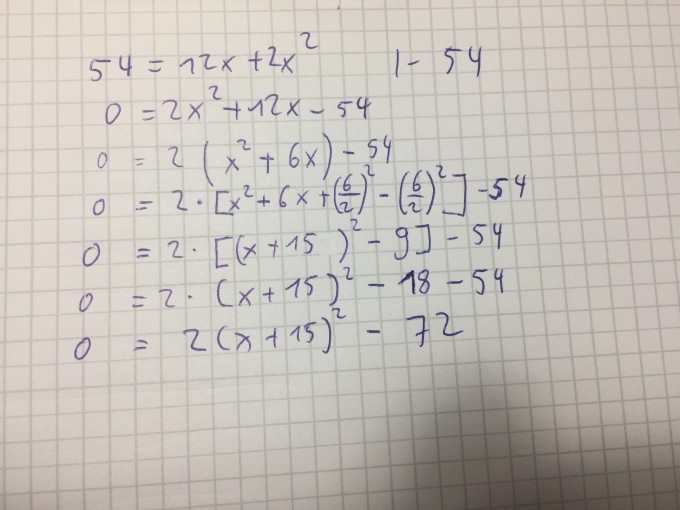 54 = 12x + 2x² | - 54
0 = 2x² + 12x - 54
0 = 2 (x² + 6x) - 54
0 = 2 · [x² + 6x + (6/2)² - (6/2)²] - 54
0 = 2 · [(x + 15)² - 9] - 54
0 = 2 · (x + 15)² - 18 - 54
0 = 2 (x + 15)² - 72